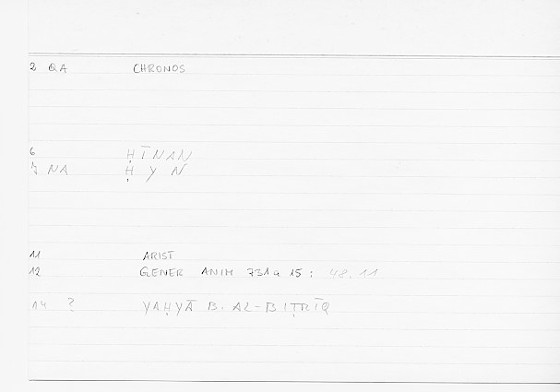 2 QA CHRONOS
6 ḤĪNAN
7 NA Ḥ Y N
11 ARIST
12 GENER ANIM 731a 15 : 48.11
14 ? YAḤYĀ B. AL-BIṬRĪQ